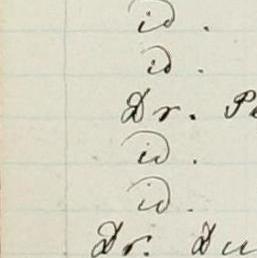 id.
id.
Dr. Pe
id.
id.
Dr. Du